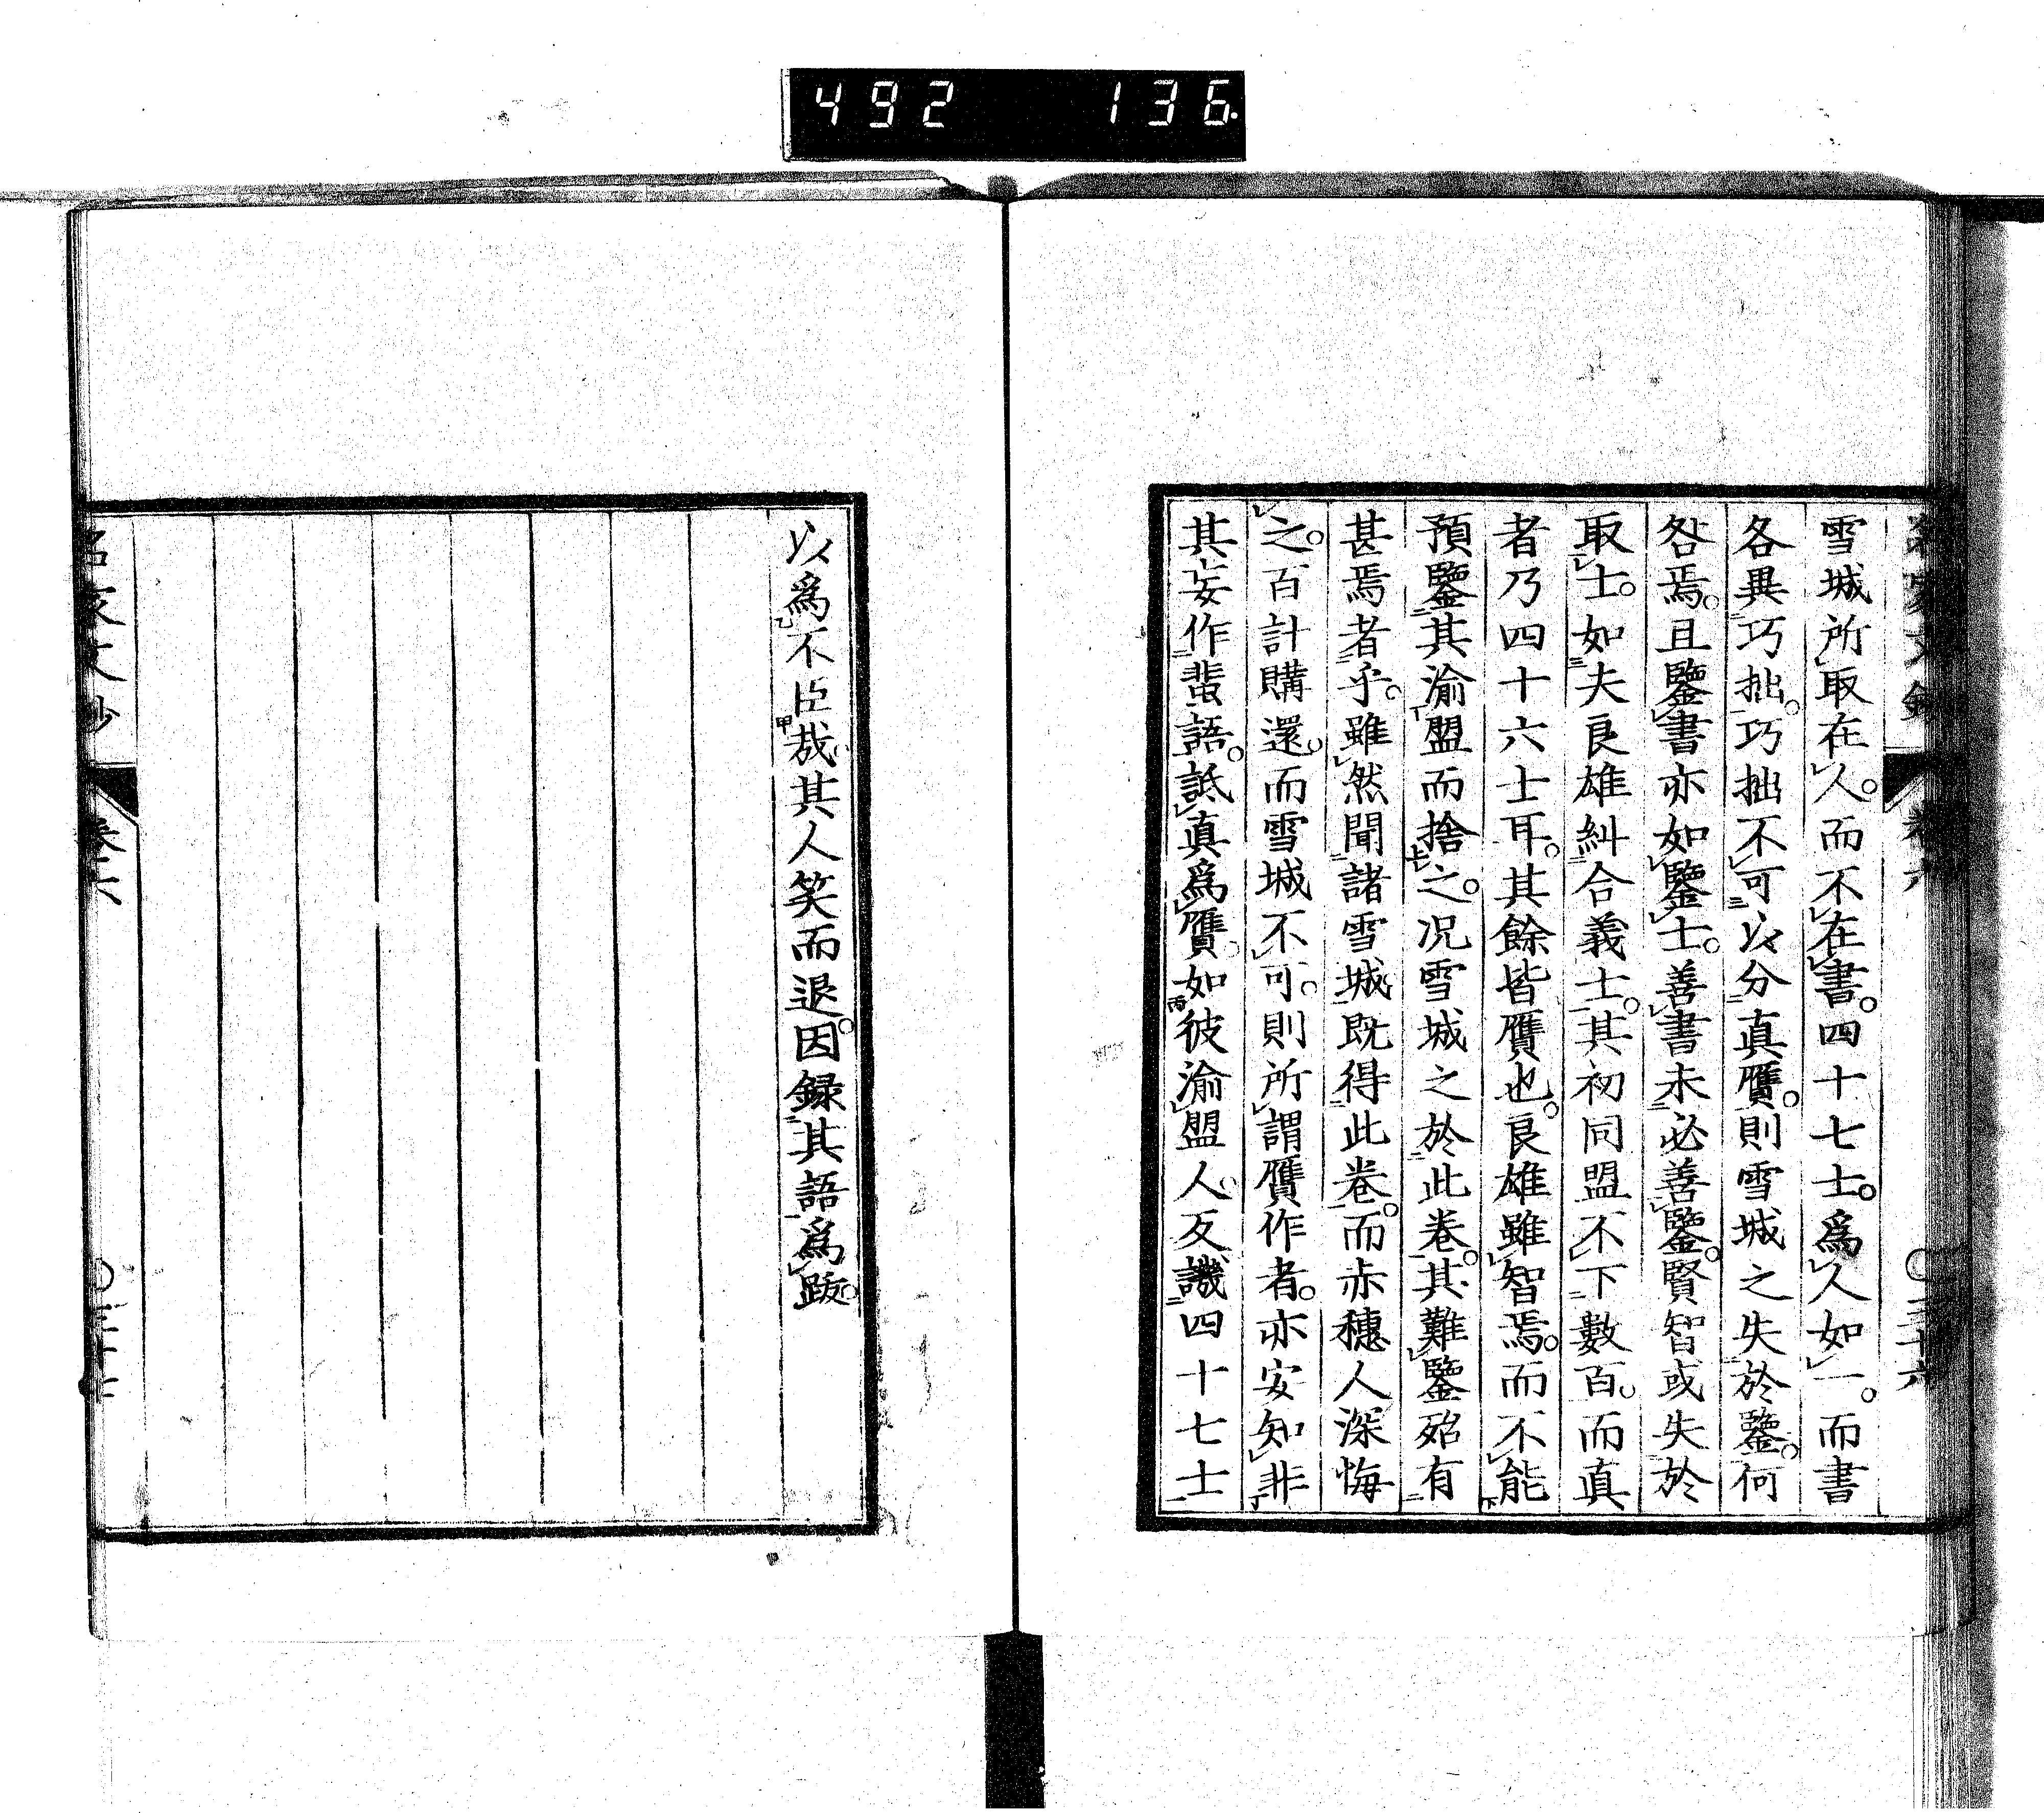 492 136
雪城所取在人。而不在書。四十七士。爲人如一。而書
各異巧拙。巧拙不可以分真贋。則雪城之失於鑒。何
咎焉。且鑒書亦如鑒士。善書未必善鑒。賢智或失於
取士。如夫良雄糾合義士。其初同盟不下數百。而真
者乃四十六士耳。其餘皆贋也。良雄雖智焉。而不能
預鑒其渝盟而捨之。况雪城之於此卷。其難鑒殆有
甚焉者乎。雖然聞諸雪城既得此卷。而赤穗人深悔
之。百計購還。而雪城不可。則所謂贋作者。亦安知非
其妄作蜚語。詆真爲贋。如彼渝盟人。反譏四十七士
以爲不臣哉。其人笑而退。因録其語爲跋。
名家文鈔 卷六